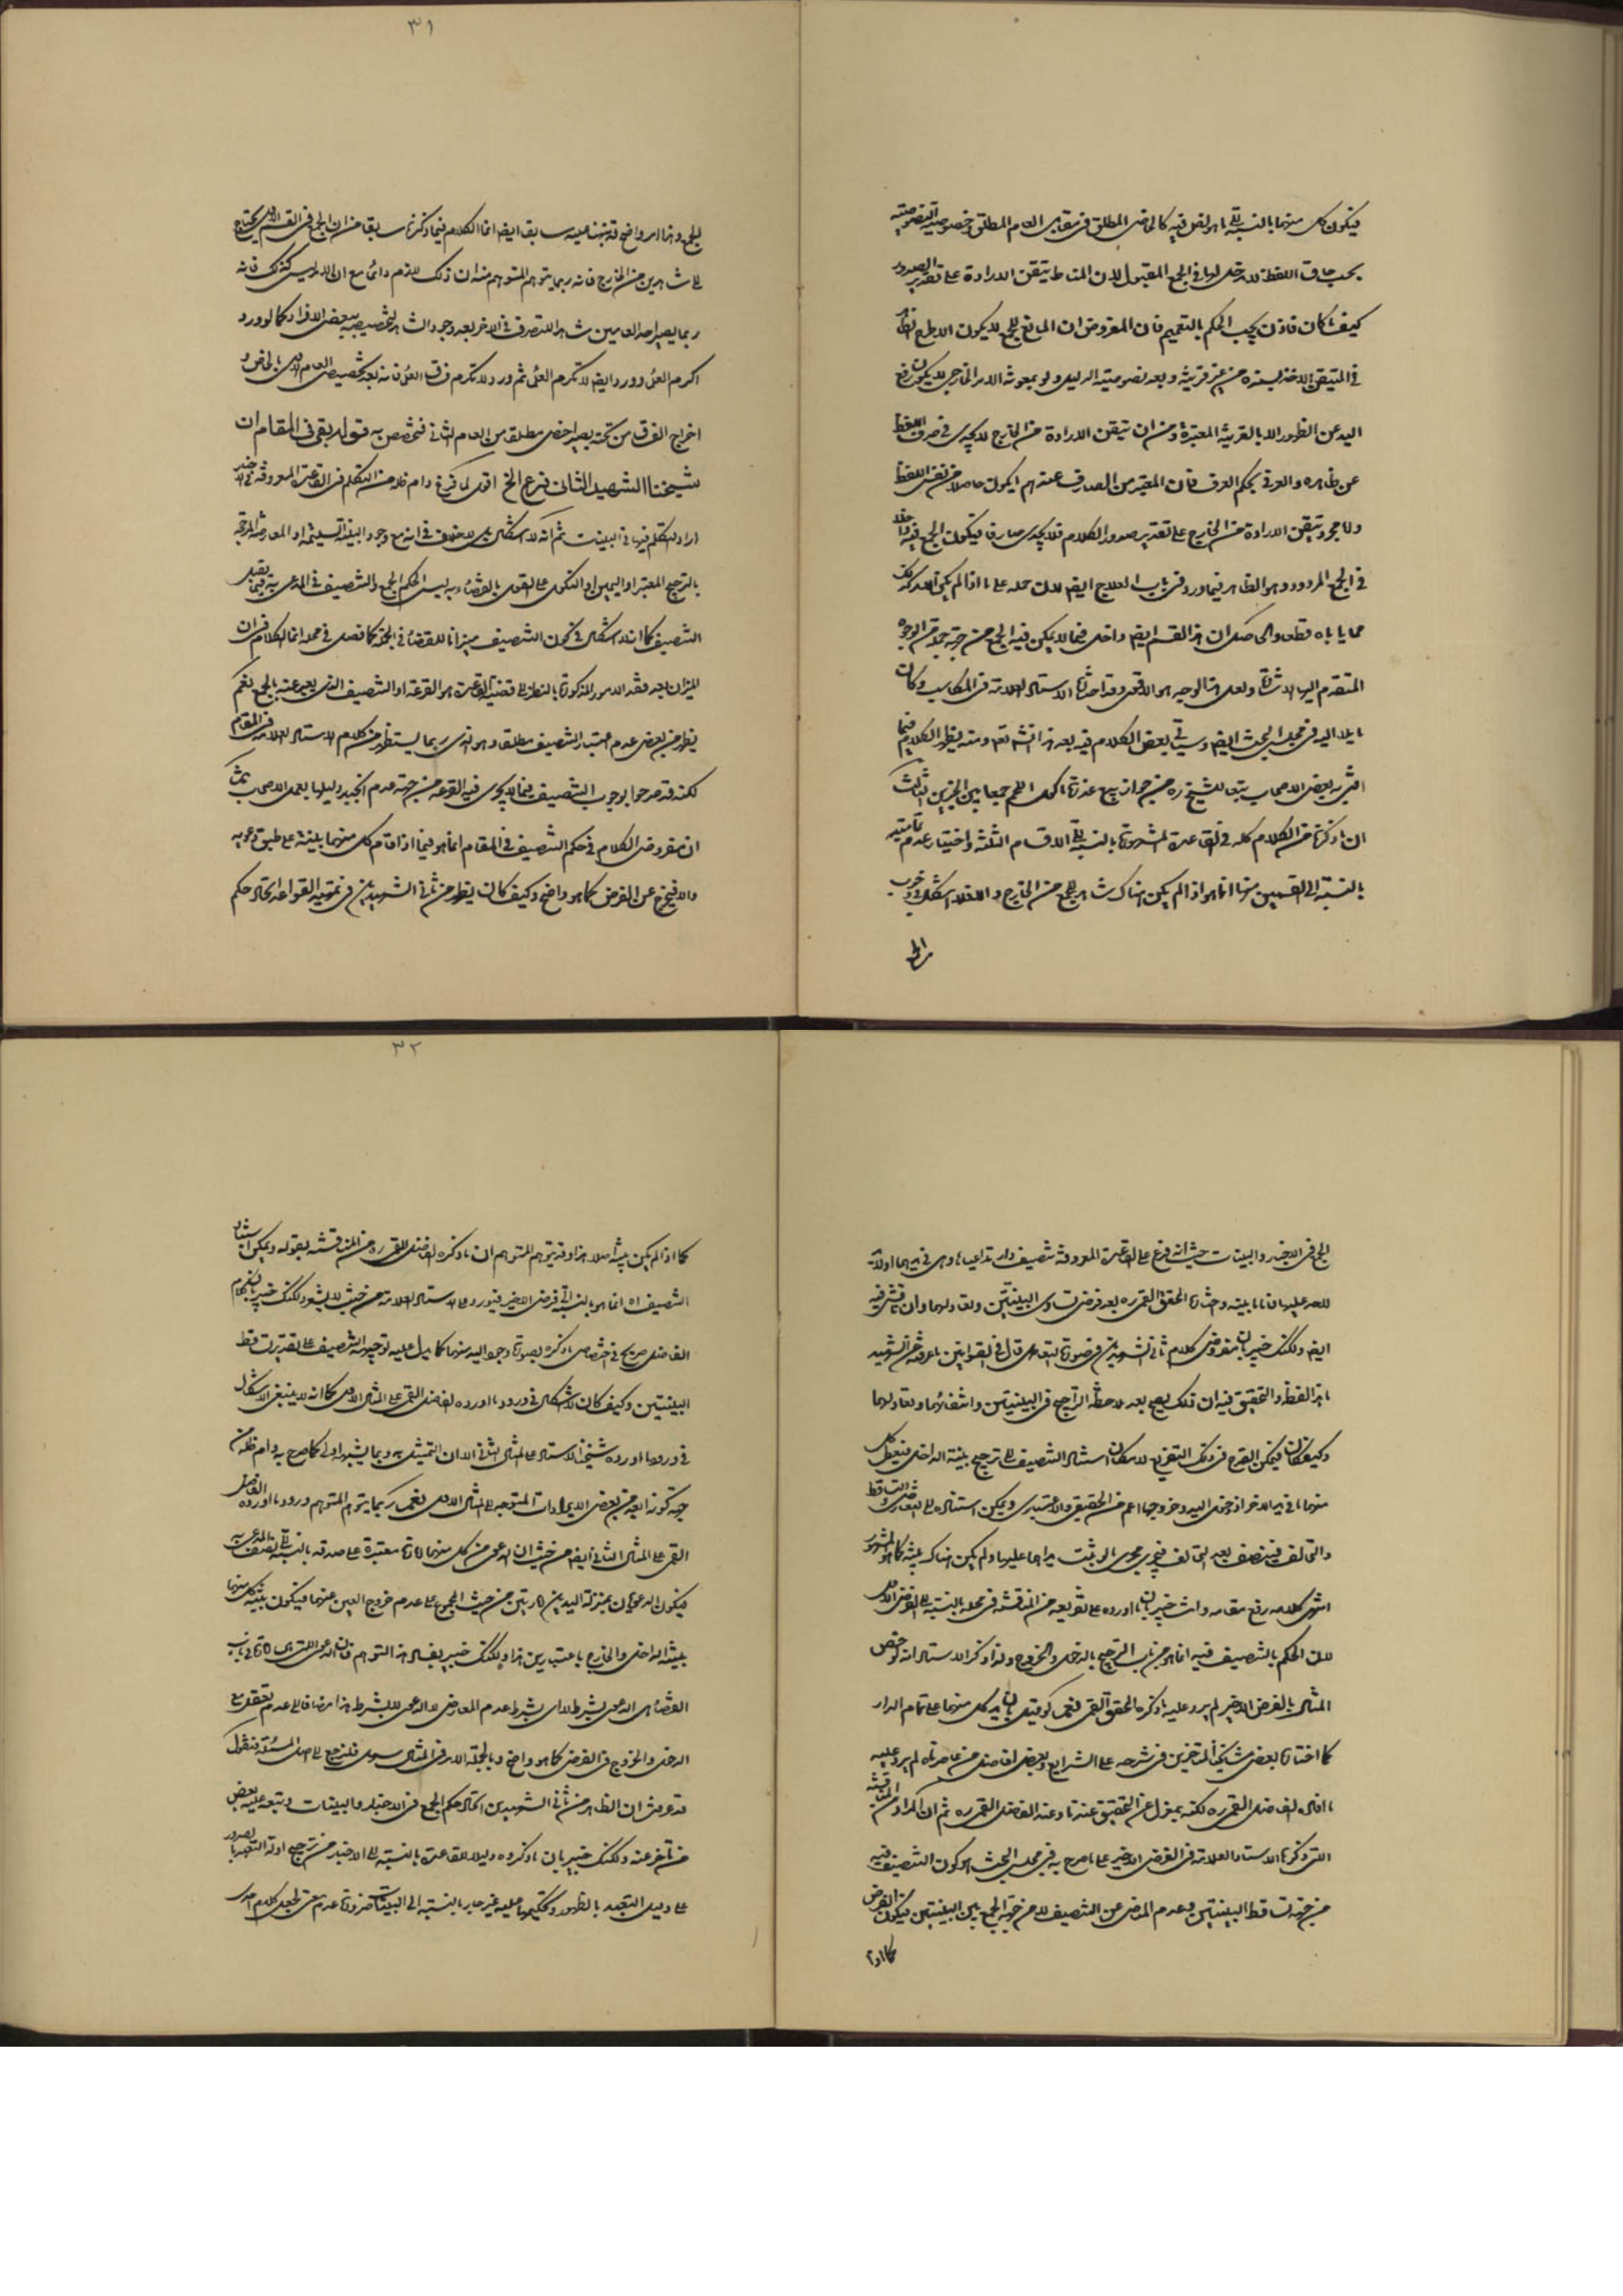 فيكون كل منهما بالنسبة الى ما هو نص فيه كالخاص المطلق في مقابل العام المطلق وخصوصية النصوصية
بحسب حاق اللفظ لا دخل لها في الجمع المقبول لان المناط تيقن الارادة على تقدير الصدور
كيف كان فاذن يجب الحكم بالتعميم فان المفروض ان المانع للجمع لا يكون الا طرح
في المتيقن الاخذ بسنده من غير قرينة وبعد نصوصية الدليل ولو بمعونة الامر الخارجي لا يمكن رفع
اليد عن الظهور الا بالقرينة المعتبرة ومن ان تيقن الارادة من الخارج لا يجدي في صرف اللفظ
عن ظاهره والعرف يحكم العرف فان المعتبر من الصارف عندهم ما يكون حاصلا من نفس اللفظ
واما مجرد تيقن الارادة من الخارج على تقدير صدور الكلام فلا يجدي صارفا فيكون الجمع فيه داخلا
في الجمع المردود وهو الظاهر فيما ورد في باب العلاج ايضا لان حمله على ما اذا لم يكن الامر كذلك
مما ياباه قطعا والحاصل ان هذا القسم ايضا داخل فيما لا يمكن فيه الجمع من جهة
المتقدم اليها الاشارة ولعل هذا الوجيه هو الاقوى وقد اختاره الاستاد العلامة في المكاسب وكان
مايلا اليه في مجلس البحث ايضا وسياتي بعض الكلام فيه بعد هذا انشاء الله تعالى ومنه يظهر الكلام فيما
بعض الاصحاب تبعا للشيخ ره من جواز بيع عذرة ماكول اللحم جمعا بين الخبرين الثالث
ان ما ذكرنا من الكلام كله في القاعدة المشهورة بالنسبة الى الاقسام الثلثة واختيار عدم تماميته
بالنسبة الى القسمين منها انما هو اذا لم يكن هناك شاهد للجمع من الخارج والا فلا اشكال في وجوب
الجمع
٣١
للجمع وهذا امر واضح قد نبهنا عليه سابقا ايضا انما الكلام فيما ذكرنا سابقا من ان الجمع في القسم الاول يحتاج
الى شاهدين من الخارج فانه ربما يتوهم المتوهم منه ان ذلك لازم دائما مع ان الامر ليس كذلك فانه
ربما يصير احد العامين شاهدا للتصرف في الاخر بعد وجود الشاهد لتخصيصه ببعض الافراد كما لو ورد
اكرم العلماء وورد ايضا لا تكرم العلماء ثم ورد لا تكرم فساق العلماء فانه بعد تخصيص العام الاول بالخاص و
اخراج الفساق من تحته يصير اخص مطلقا من العام الثاني فيخصص به قوله بقي في المقام ان
شيخنا الشهيد الثاني فرع الخ اقول لما فرغ دام ظله من التكلم في القاعدة المعروفة في الاخبار
اراد التكلم فيها في البينات ثم انه لا اشكال بل لا خلاف في انه مع وجود البينة السليمة او المعارضة المرجحة
بالترجيح المعتبر او اليمين او النكول على القول بالقضاء به ليس الحكم الجمع والتنصيف في المدعى به فيما يقبل
التنصيف كما انه لا اشكال في كون التنصيف ميزانا للقضاء في الجملة كما فصل في محله انما الكلام في ان
الميزان بعد فقد الامور المذكورة بالنظر الى قضية القاعدة هو القرعة او التنصيف الذي يعبر عنه بالجمع نعم
يظهر من بعض عدم اعتبار التنصيف مطلقا وهو الذي ربما يستظهر من كلام الاستاد العلامة في المقام
لكنه قد صرحوا بوجوب التنصيف فيما لا يجري فيه القرعة من جهة عدم انجبار دليلها بعمل الاصحاب ثم
ان مفروض الكلام في حكم التنصيف في المقام انما هو فيما اذا اقام كل منهما بينة على طبق دعويه
والا فيخرج عن الفرض كما هو واضح وكيف كان يظهر من ثاني الشهيدين في تمهيد القواعد اتحاد حكم
الجمع في الاخبار والبينات حيث انه فرع على القاعدة المعروفة تنصيف دار تداعياها وهي في يدهما او لا يد
لاحد عليها فاقاما بينة وحكاه المحقق القمي ره بعد فرض تساوي البينتين وتعادلهما وان ناقش فيه
ايضا ولكنك خبير بان مفروض كلام ثاني الشهيدين في صورة التعادل قال في القوانين ما عرفته من الشهيد
هذا لفظه والتحقيق فيه ان ذلك يصح بعد ملاحظة التراجيح في البينتين وانتفائهما وتعادلهما
وكيف كان فيمكن القدح في ذلك التفريع لامكان استناد التنصيف الى ترجيح بينة الداخل فيعطى كل
منهما ما في يد الاخر او دخول اليد وخروجها اعم من الحقيقي والاعتباري ويمكن استناده الى التعارض والتساقط
والتحالف فينصف بعد التحالف فيجري مجرى ما لو ثبت يداهما عليها ولم يكن هناك بينة كما هو المشهور
انتهى كلامه رفع مقامه وانت خبير بان ما اورده على تفريعه من المناقشة في محله بالنسبة الى الفرض الاول
لان الحكم بالتنصيف فيه انما هو من باب الترجيح بالدخول والخروج ولذا ذكر الاستاد انه لو خص
المثال بالفرض الاخير لم يرد عليه ما ذكره المحقق القمي نعم لو قيل بان يد كل منهما على تمام الدار
كما اختاره بعض مشايخنا المتاخرين في شرحه على الشرايع وبعض افاضل من عاصرناه لم يرد عليه
ما افاده الفاضل القمي ره لكنه بمعزل عن التحقيق عندنا وعند الفاضل القمي ره ثم ان المراد من المناقشة
التي ذكرها الاستاد العلامة في الفرض الاخير على ما صرح به في مجلس البحث هو كون التنصيف فيه
من جهة تساقط البينتين وعدم المرض عن التنصيف لا من جهة الجمع بين البينتين فيكون الفرض
كما اذا
٣٢
كما اذا لم يكن بينة اصلا هذا وقد يتوهم المتوهم ان ما ذكره الفاضل القمي ره من المناقشة بقوله ويمكن استناد
التنصيف اه انما هو بالنسبة الى فرض الاخير فيورد على الاستاد العلامة من حيث لا يشعر ولكنك خبير بان كلام
الفاضل صريح في اختصاص ما ذكره بصورة وجود اليد منهما كما يدل عليه توجيهه التنصيف على تقدير تساقط
البينتين وكيف كان لا اشكال في ورود ما اورده الفاضل القمي على المثال الاول كما انه لا ينبغي الاشكال
في ورود ما اورده شيخنا الاستاد على المثال الثاني الا ان التمثيل به وبما يشبهه اولى كما صرح به دام ظله من
جهة كونه ابعد من بعض الايرادات المتوجه الى المثال الاول نعم ربما يتوهم المتوهم ورود ما اورده الفاضل
القمي على المثال الثاني ايضا من حيث ان الدعوى من كل منهما امارة معتبرة على صدقه بالنسبة الى نصف المدعى به
فيكون الدعويان بمنزلة اليدين امارتين من حيث المجموع على عدم خروج العين عنهما فيكون بينة كل منهما
بينة الداخل والخارج باعتبارين هذا ولكنك خبير بفساد هذا التوهم فان الدعوى التي هي امارة في باب
القضاء هي الدعوى بشرط لا اي بشرط عدم المعارض لا الدعوى لا بشرط هذا مضافا الى عدم تعقل
الدخول والخروج في الفرض كما هو واضح وبالجملة الامر في المثال سهل فلنرجع الى اصل المسئلة فنقول
قد عرفت ان الظاهر من ثاني الشهيدين اتحاد حكم الجمع في الاخبار والبينات وتبعه عليه بعض
من تاخر عنه ولكنك خبير بان ما ذكروه دليلا للقاعدة بالنسبة الى الاخبار من ترجيح ادلة التعبد بالصدور
على دليل التعبد بالظهور وتحكيمها عليه غير جار بالنسبة الى البينات ضرورة عدم معنى لجعل كلام احد